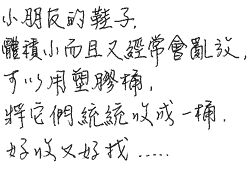 小朋友的鞋子,
體積小而且又經常會亂放,
可以用塑膠桶,
將它們統統收成一桶,
好收又好找.....